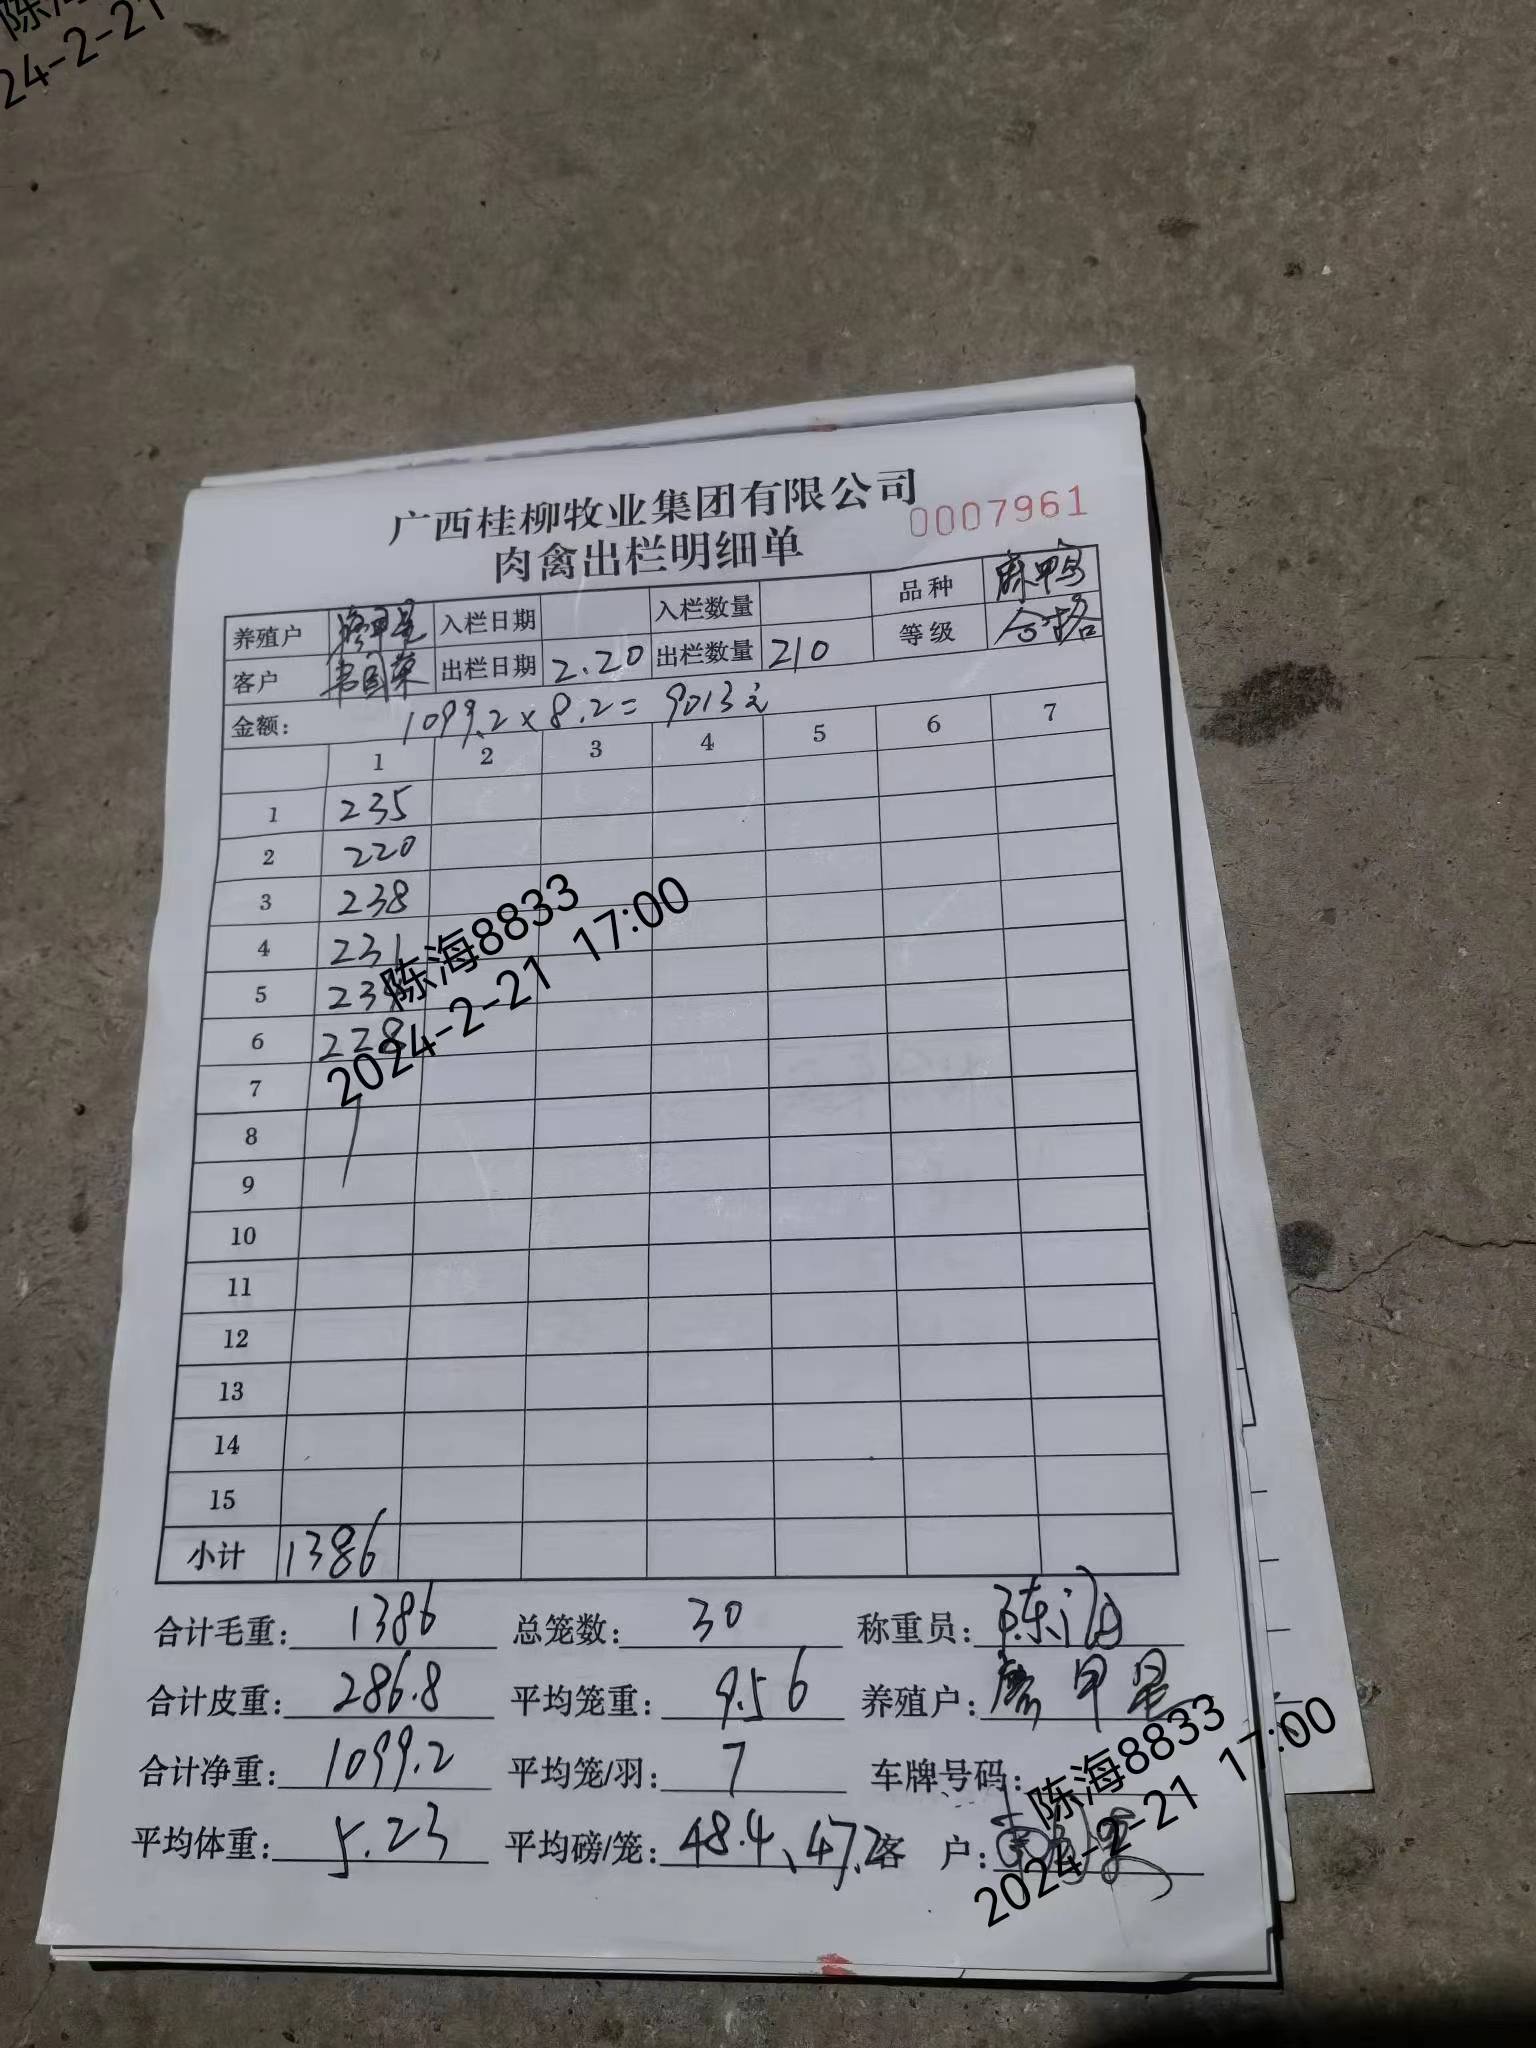 24-2-21
广西桂柳牧业集团有限公司
0007961
肉禽出栏明细单
养殖户 廖甲星 入栏日期 入栏数量 品种 麻鸭
客户 韦国荣 出栏日期 2.20 出栏数量 210 等级 合格
金额: 1099.2×8.2=9013元
1 2 3 4 5 6 7
1 235
2 220
3 238
4 231
5 23
6 228
7
8
9
10
11
12
13
14
15
小计 1386
陈海8833
2024-2-21 17:00
合计毛重: 1386 总笼数: 30 称重员: 陈海
合计皮重: 286.8 平均笼重: 9.56 养殖户: 廖甲星
合计净重: 1099.2 平均笼/羽: 7 车牌号码:
平均体重: 5.23 平均磅/笼: 48.4、47.2 客户:
陈海8833
2024-2-21 17:00